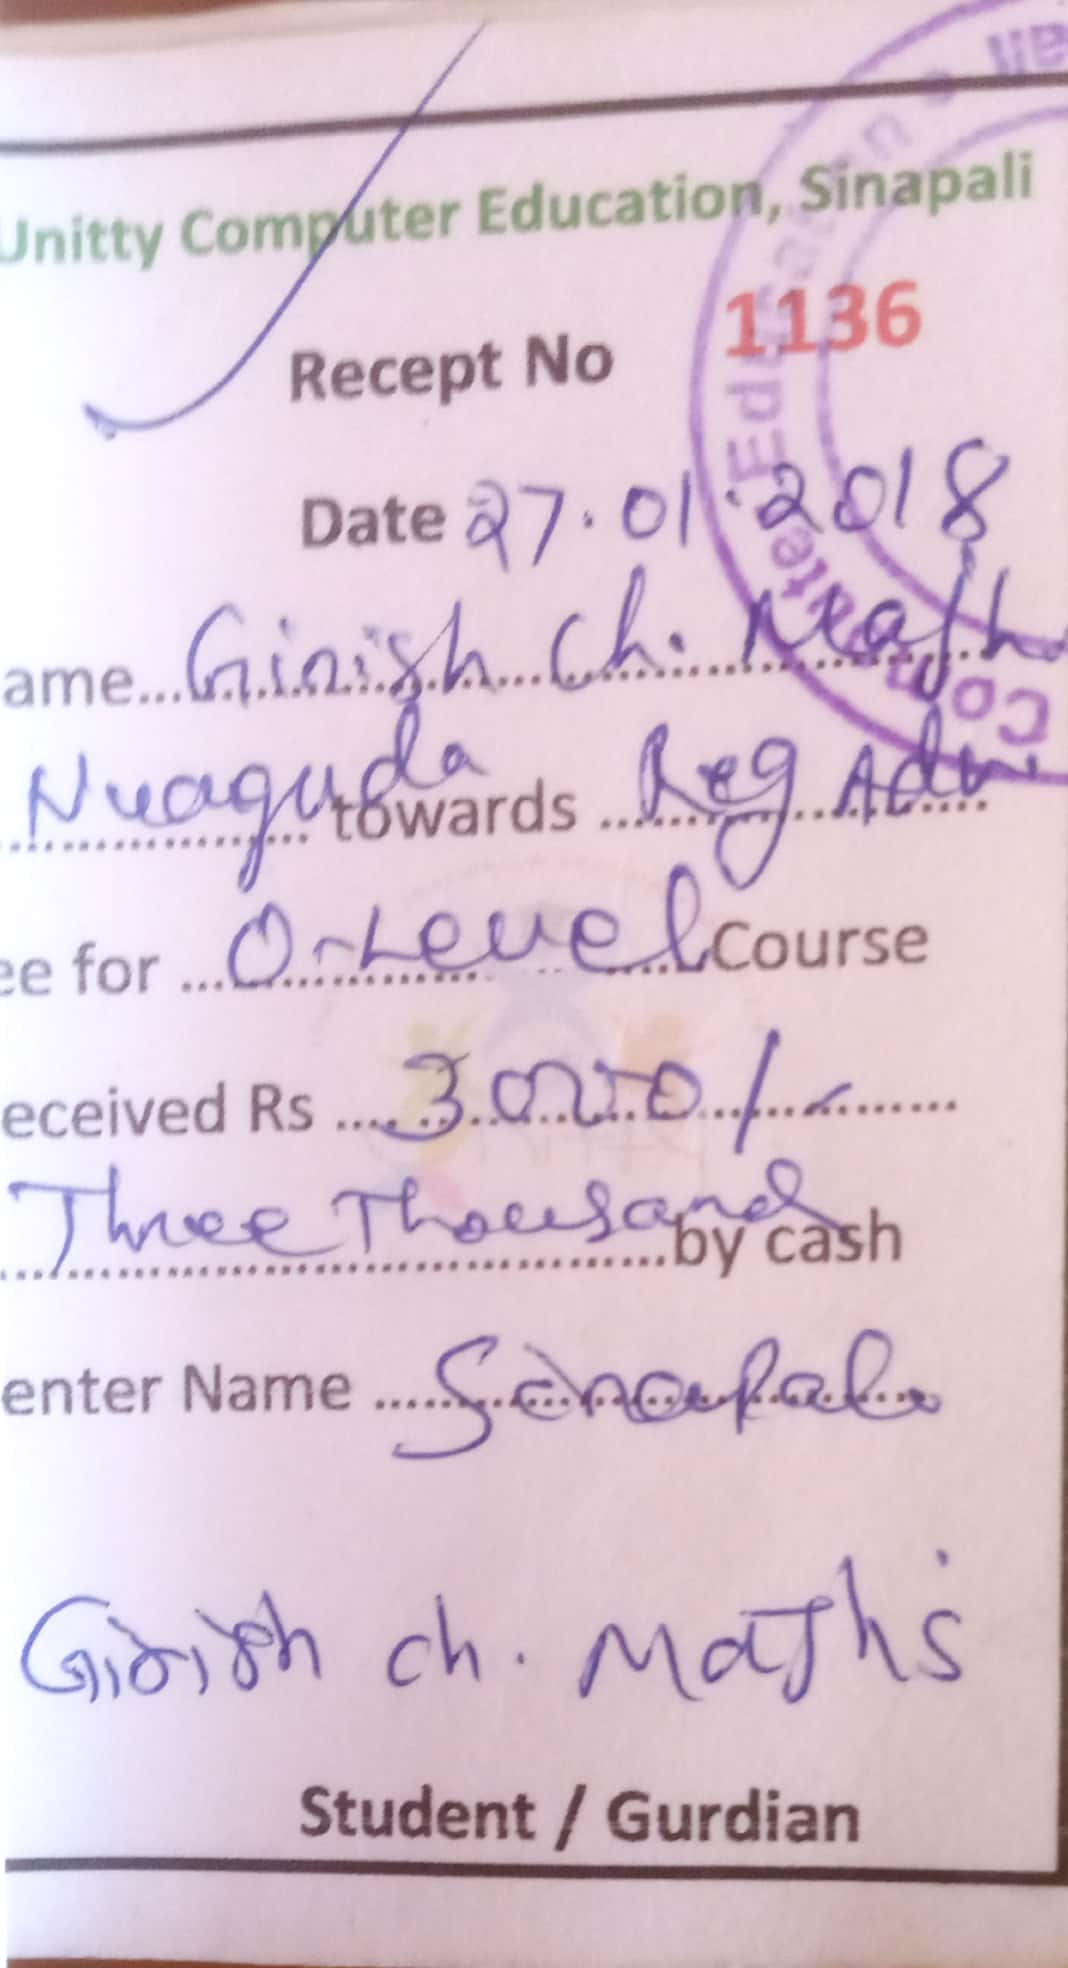 Unitty Computer Education, Sinapali
Recept No 1136
Date 27.01.2018
ame... Girish Ch. Majhi
Nuaguda towards Reg Adm
ee for O-Level Course
eceived Rs 3000/-
Three Thousand by cash
enter Name Sinapali
Girish ch. Majhi
Student / Gurdian
Computer Education